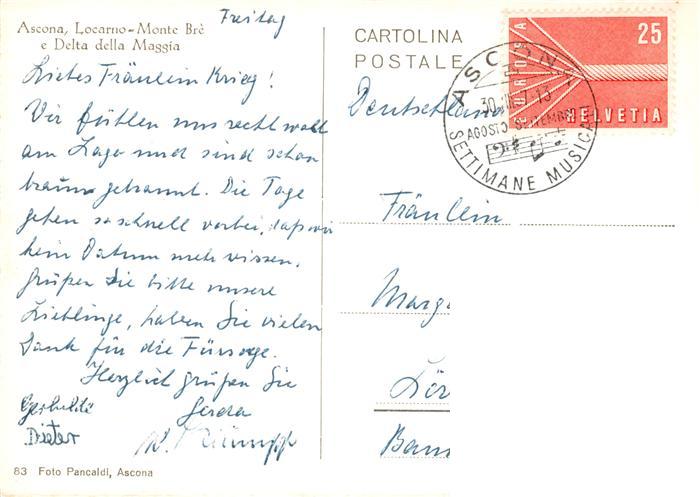 Freitag
Ascona, Locarno-Monte Brè
e Delta della Maggia
Liebes Fräulein Krieg!
Wir fühlen uns recht wohl
am Lago und sind schon
braun gebrannt. Die Tage
gehen so schnell vorbei, daß wir
kein Datum mehr wissen.
Grüßen Sie bitte unsere
Lieblinge, haben Sie vielen
Dank für die Fürsorge.
Herzlich grüßen Sie
Gerda
Dieter
83 Foto Pancaldi, Ascona
CARTOLINA
POSTALE
EUROPA
25
HELVETIA
ASCONA
AGOSTO SETTEMBRE
SETTIMANE MUSICALI
Deutschland
Fräulein
Marg
Lör